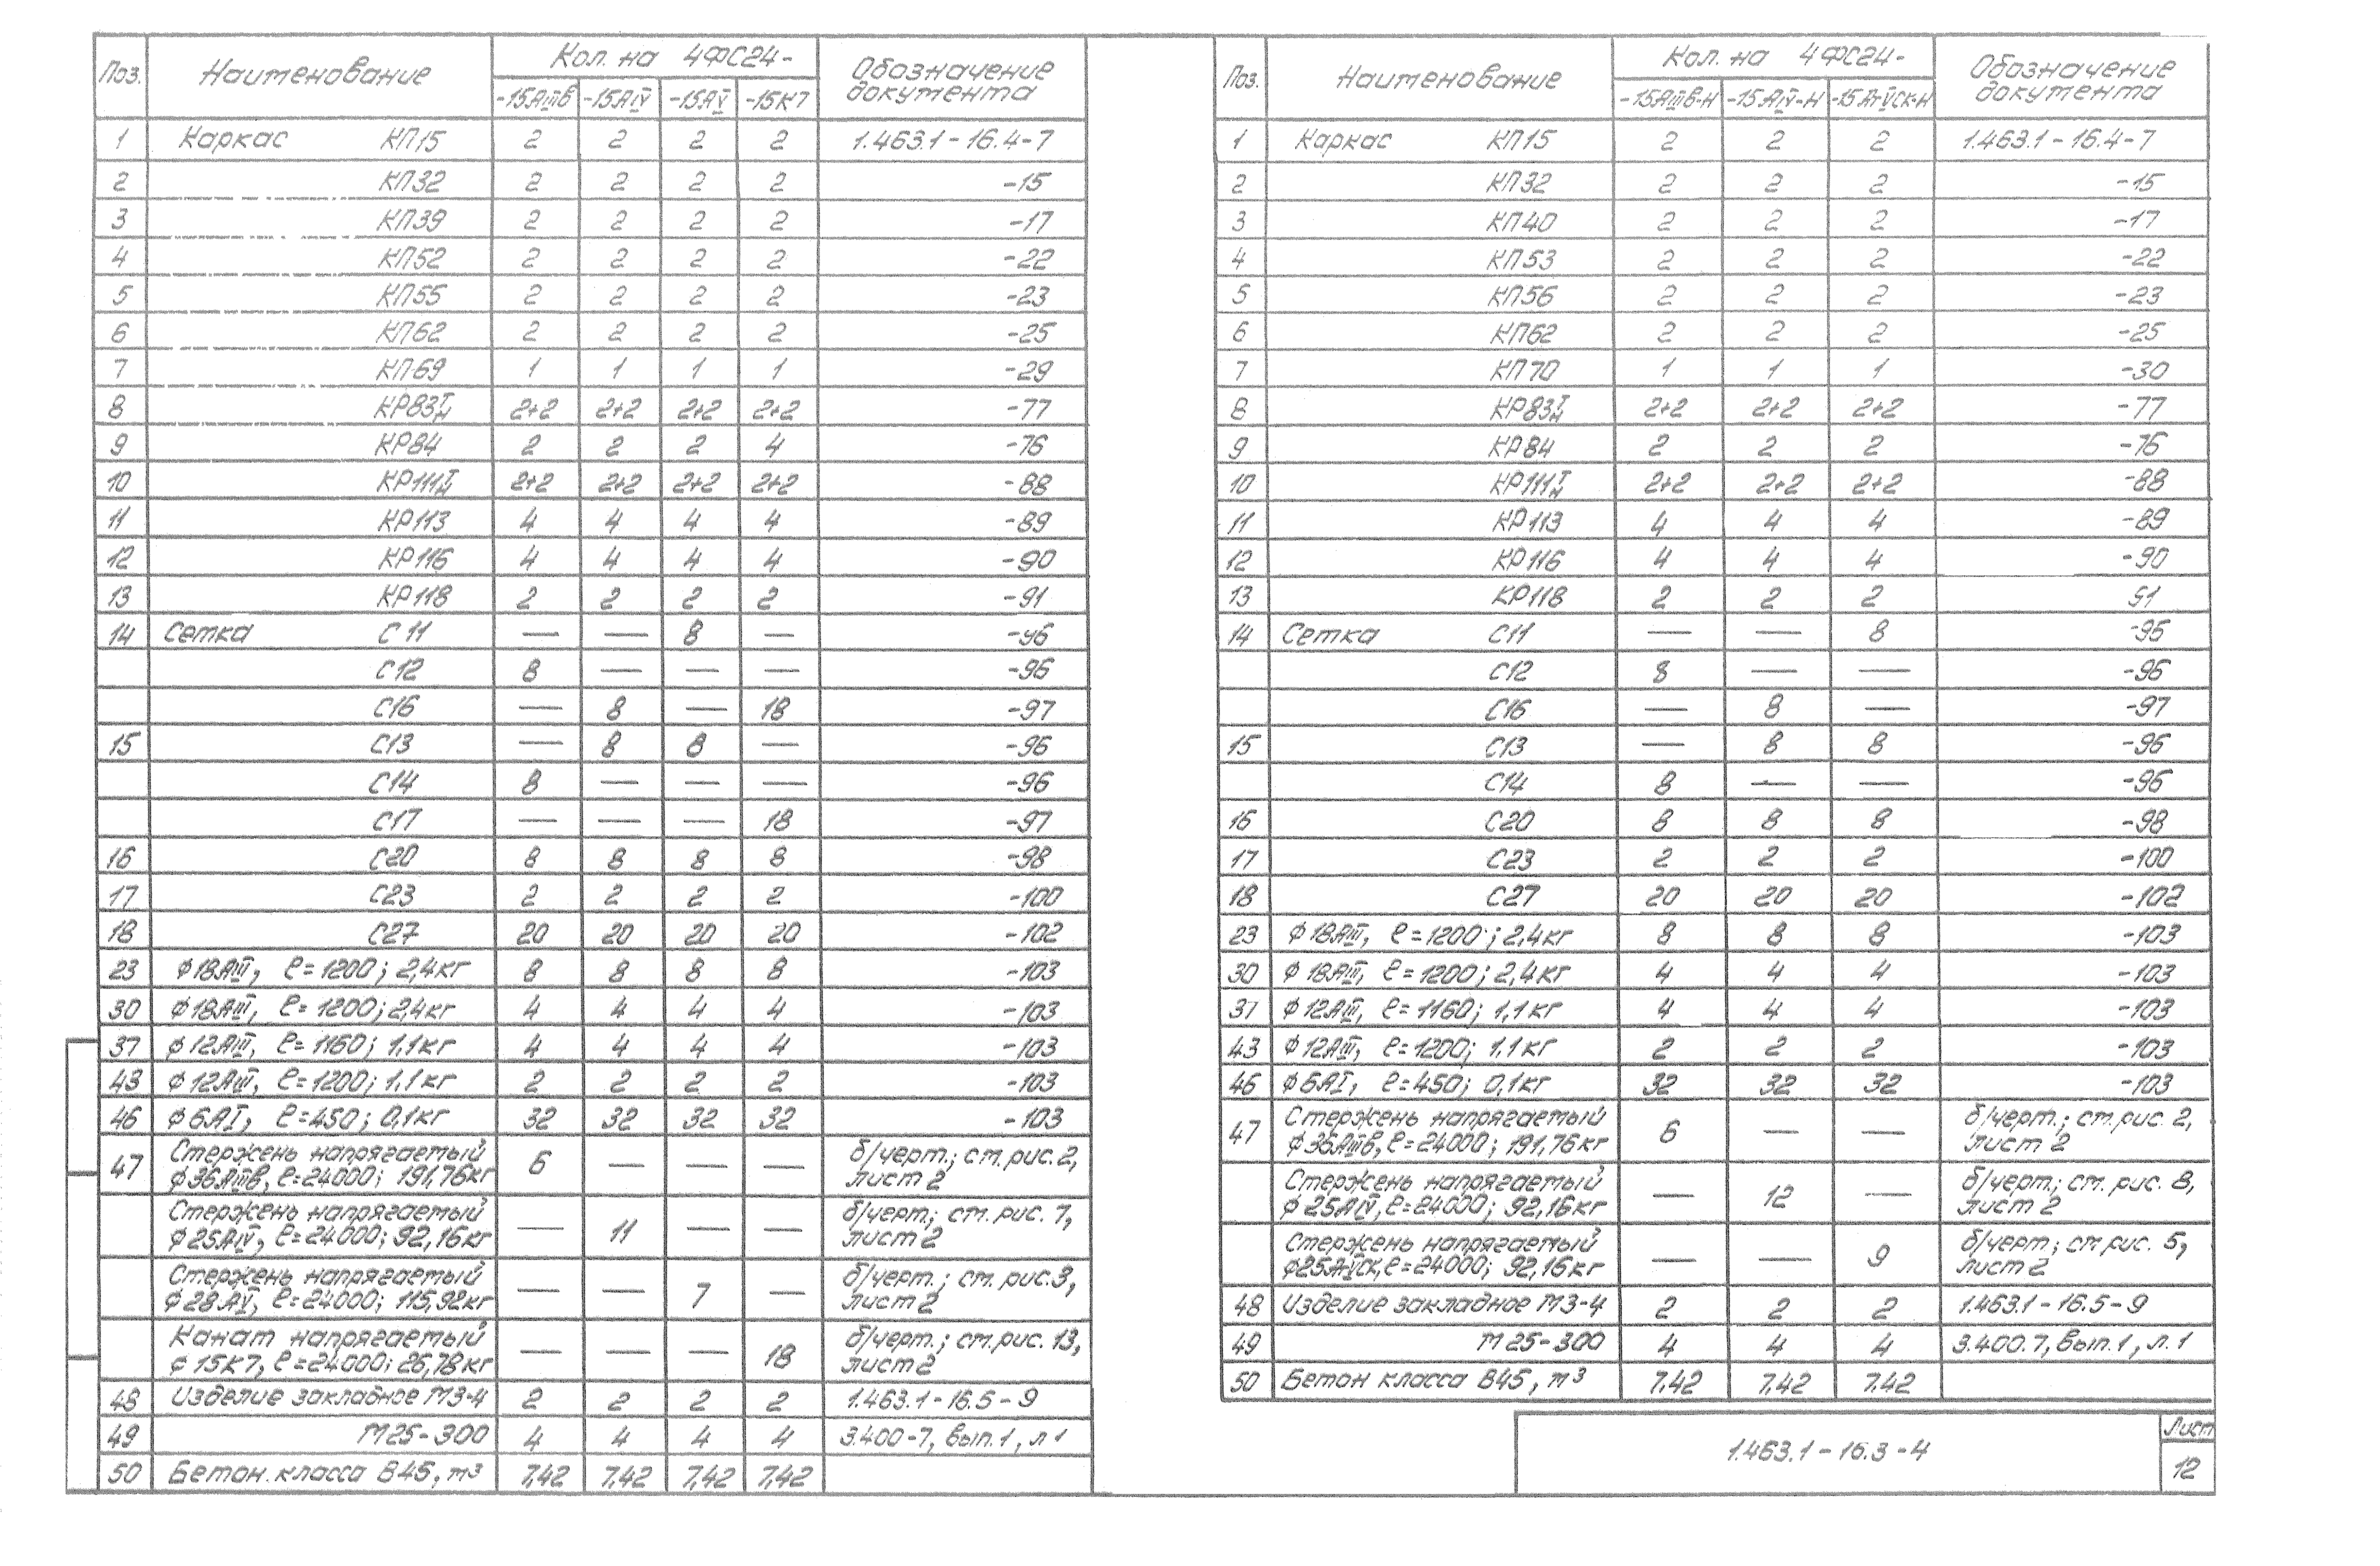 Поз. Наименование Кол. на 4ФС24- Обозначение документа
-15АIIIв -15АIV -15АV -15К7
1 Каркас КП15 2 2 2 2 1.463.1-16.4-7
2 КП32 2 2 2 2 -15
3 КП39 2 2 2 2 -17
4 КП52 2 2 2 2 -22
5 КП55 2 2 2 2 -23
6 КП62 2 2 2 2 -25
7 КП69 1 1 1 1 -29
8 КР83Т/Н 2+2 2+2 2+2 2+2 -77
9 КР84 2 2 2 4 -76
10 КР111Т/Н 2+2 2+2 2+2 2+2 -88
11 КР113 4 4 4 4 -89
12 КР116 4 4 4 4 -90
13 КР118 2 2 2 2 -91
14 Сетка С11 — — 8 — -96
С12 8 — — — -96
С16 — 8 — 18 -97
15 С13 — 8 8 — -96
С14 8 — — — -96
С17 — — — 18 -97
16 С20 8 8 8 8 -98
17 С23 2 2 2 2 -100
18 С27 20 20 20 20 -102
23 ϕ18АIII, ℓ=1200; 2,4кг 8 8 8 8 -103
30 ϕ18АIII, ℓ=1200; 2,4кг 4 4 4 4 -103
37 ϕ12АIII, ℓ=1160; 1,1кг 4 4 4 4 -103
43 ϕ12АIII, ℓ=1200; 1,1кг 2 2 2 2 -103
46 ϕ6АI, ℓ=450; 0,1кг 32 32 32 32 -103
47 Стержень напрягаемый ϕ36АIIIв, ℓ=24000; 191,76кг 6 — — — б/черт.; см. рис. 2, лист 2
Стержень напрягаемый ϕ25АIV, ℓ=24000; 92,16кг — 11 — — б/черт.; см. рис. 7, лист 2
Стержень напрягаемый ϕ28АV, ℓ=24000; 115,92кг — — 7 — б/черт.; см. рис. 3, лист 2
Канат напрягаемый ϕ15К7, ℓ=24000; 26,78кг — — — 18 б/черт.; см. рис. 13, лист 2
48 Изделие закладное МЗ-4 2 2 2 2 1.463.1-16.5-9
49 М25-300 4 4 4 4 3.400-7, вып. 1, л 1
50 Бетон класса В45, м³ 7,42 7,42 7,42 7,42
Поз. Наименование Кол. на 4ФС24- Обозначение документа
-15АIIIв-Н -15АIV-Н -15АтVск-Н
1 Каркас КП15 2 2 2 1.463.1-16.4-7
2 КП32 2 2 2 -15
3 КП40 2 2 2 -17
4 КП53 2 2 2 -22
5 КП56 2 2 2 -23
6 КП62 2 2 2 -25
7 КП70 1 1 1 -30
8 КР83Т/Н 2+2 2+2 2+2 -77
9 КР84 2 2 2 -76
10 КР111Т/Н 2+2 2+2 2+2 -88
11 КР113 4 4 4 -89
12 КР116 4 4 4 -90
13 КР118 2 2 2 91
14 Сетка С11 — — 8 -95
С12 8 — — -96
С16 — 8 — -97
15 С13 — 8 8 -96
С14 8 — — -96
16 С20 8 8 8 -98
17 С23 2 2 2 -100
18 С27 20 20 20 -102
23 ϕ18АIII, ℓ=1200; 2,4кг 8 8 8 -103
30 ϕ18АIII, ℓ=1200; 2,4кг 4 4 4 -103
37 ϕ12АIII, ℓ=1160; 1,1кг 4 4 4 -103
43 ϕ12АIII, ℓ=1200; 1,1кг 2 2 2 -103
46 ϕ6АI, ℓ=450; 0,1кг 32 32 32 -103
47 Стержень напрягаемый ϕ36АIIIв, ℓ=24000; 191,76кг 6 — — б/черт.; см. рис. 2, лист 2
Стержень напрягаемый ϕ25АIV, ℓ=24000; 92,16кг — 12 — б/черт.; см. рис. 8, лист 2
Стержень напрягаемый ϕ25АтVск, ℓ=24000; 92,16кг — — 9 б/черт.; см рис. 5, лист 2
48 Изделие закладное МЗ-4 2 2 2 1.463.1-16.5-9
49 М25-300 4 4 4 3.400.7, вып. 1, л. 1
50 Бетон класса В45, м³ 7,42 7,42 7,42
1.463.1-16.3-4
Лист
12